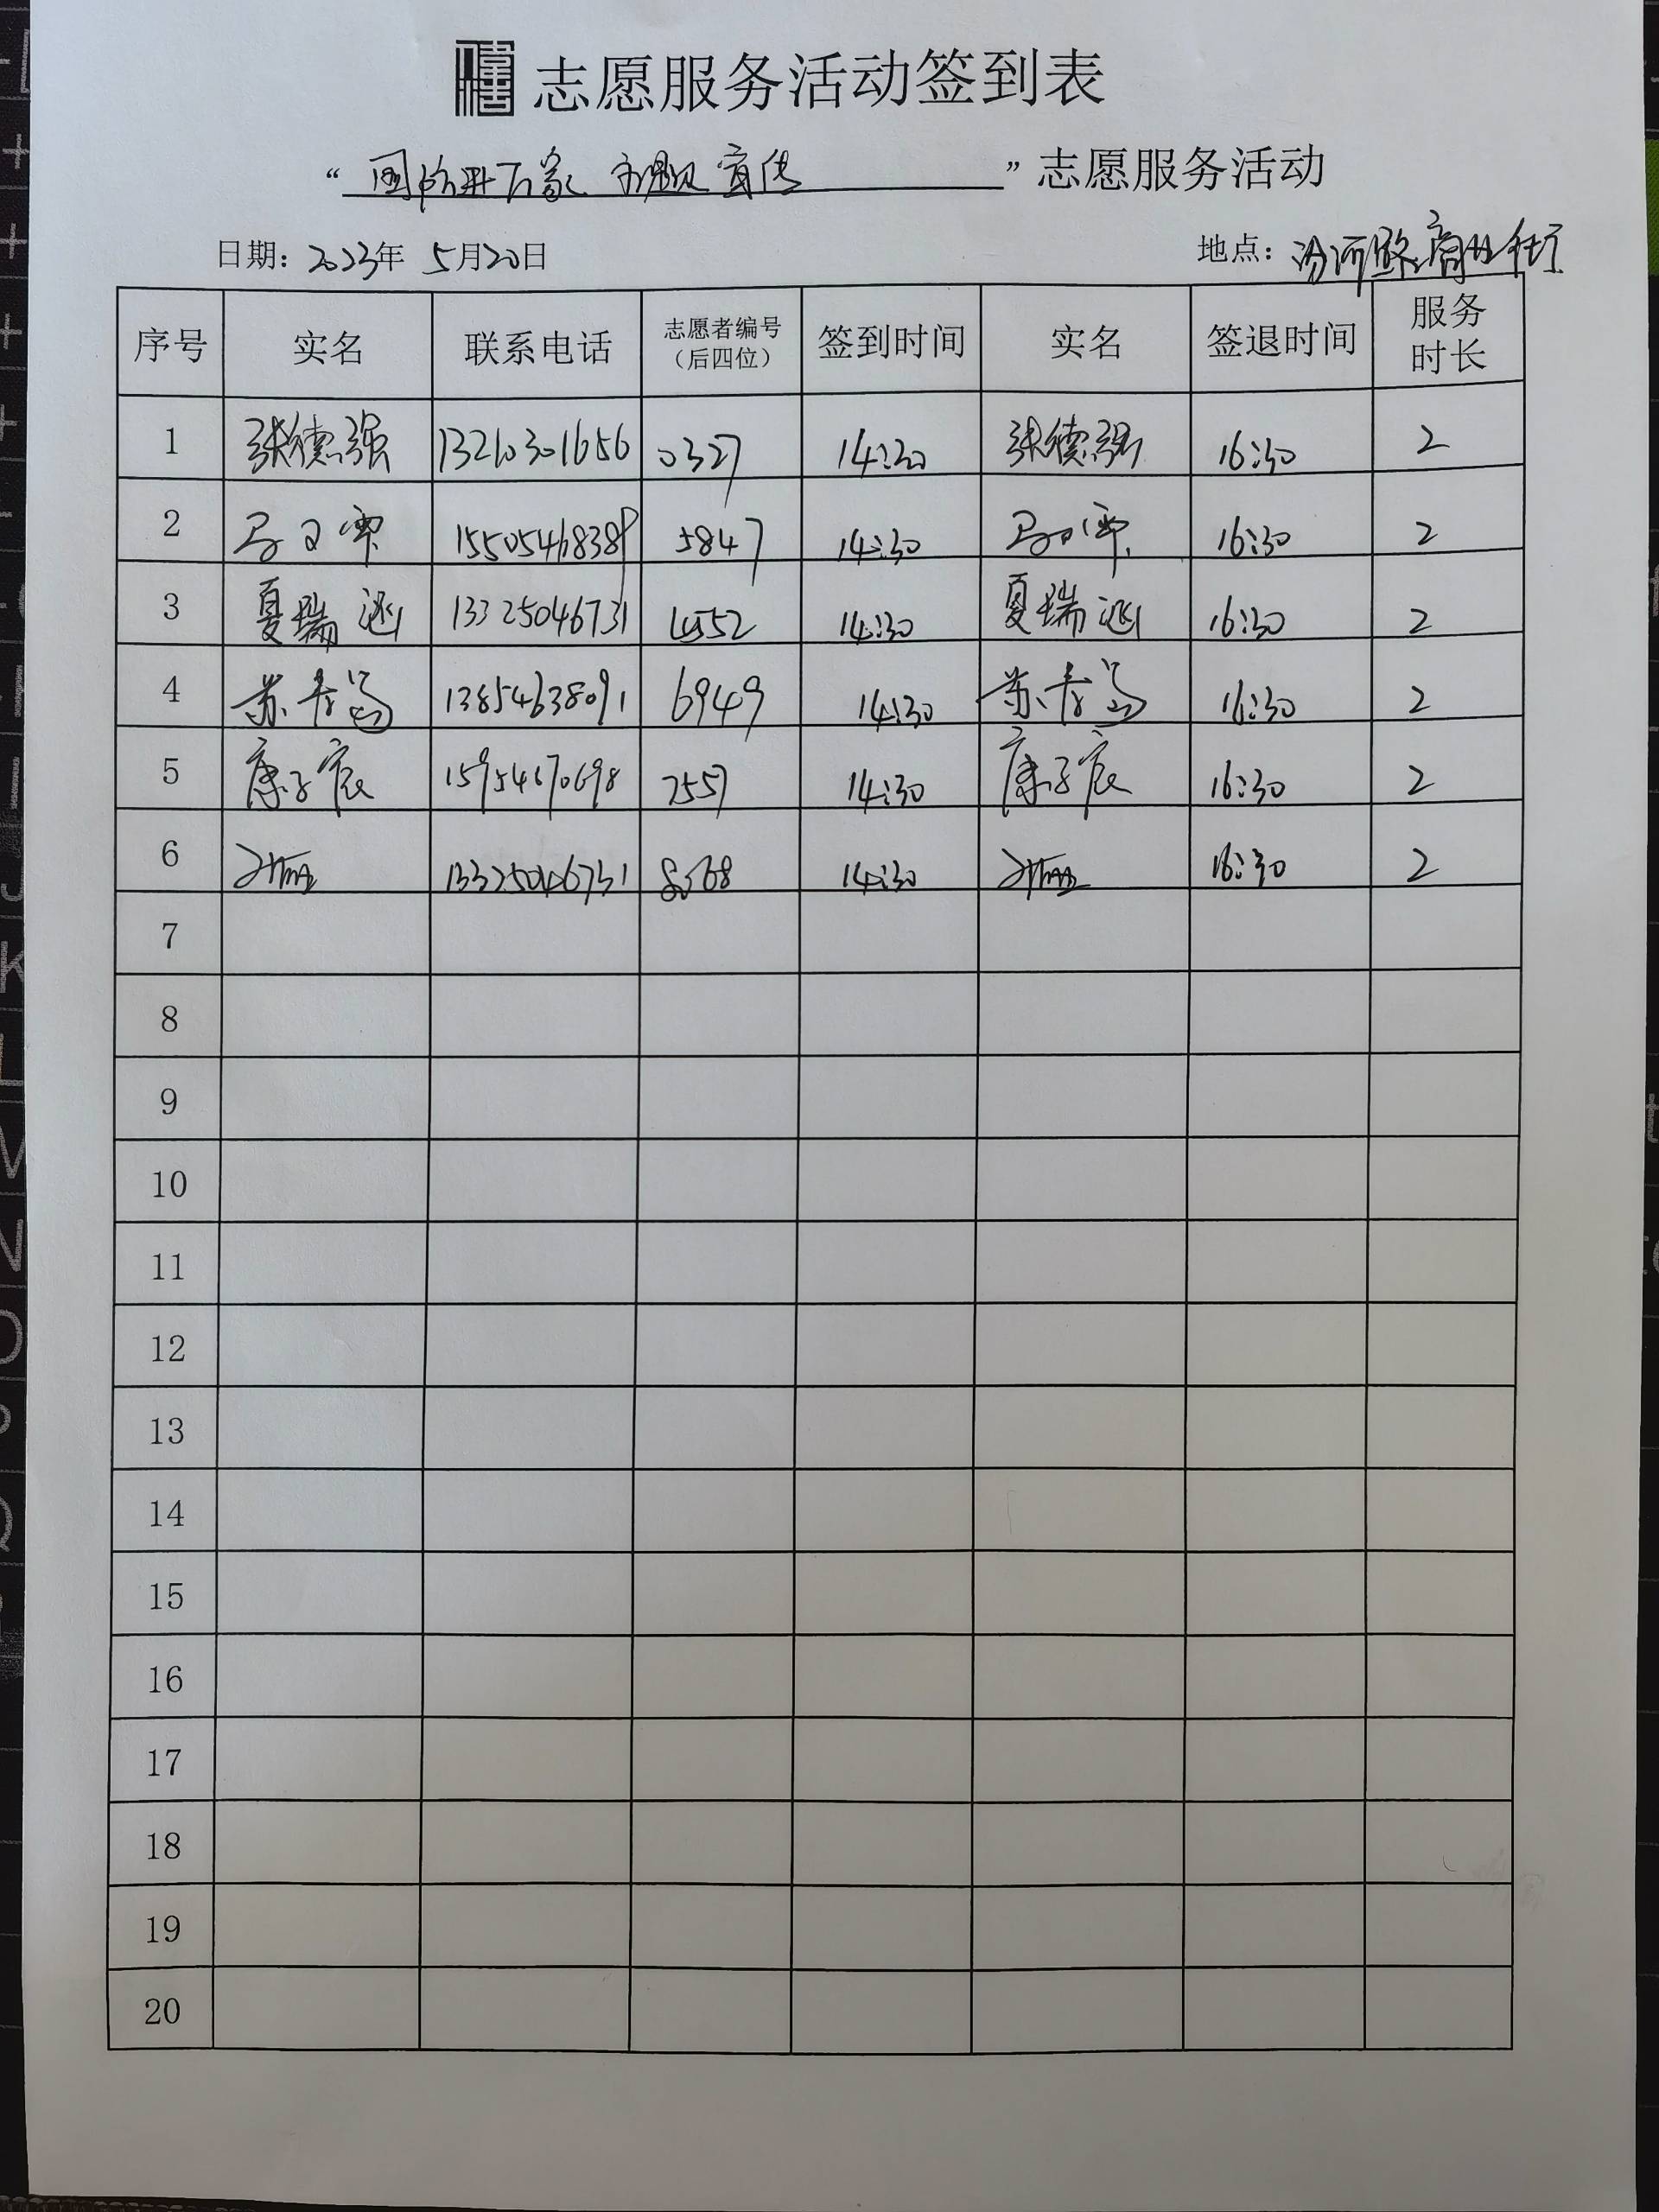 志愿服务活动签到表
“国防进万家 主题宣传”志愿服务活动
日期：2023年 5月20日 地点：汾河路商业街
序号 实名 联系电话 志愿者编号（后四位） 签到时间 实名 签退时间 服务时长
1 张德强 13210301656 0327 14:30 张德强 16:30 2
2 15505468389 5847 14:30 16:30 2
3 夏瑞涵 13325046731 14:30 夏瑞涵 16:30 2
4 苏 13854638091 6949 14:30 苏 16:30 2
5 康子宸 15954670698 7557 14:30 康子宸 16:30 2
6 13325046731 14:30 16:30 2
7
8
9
10
11
12
13
14
15
16
17
18
19
20